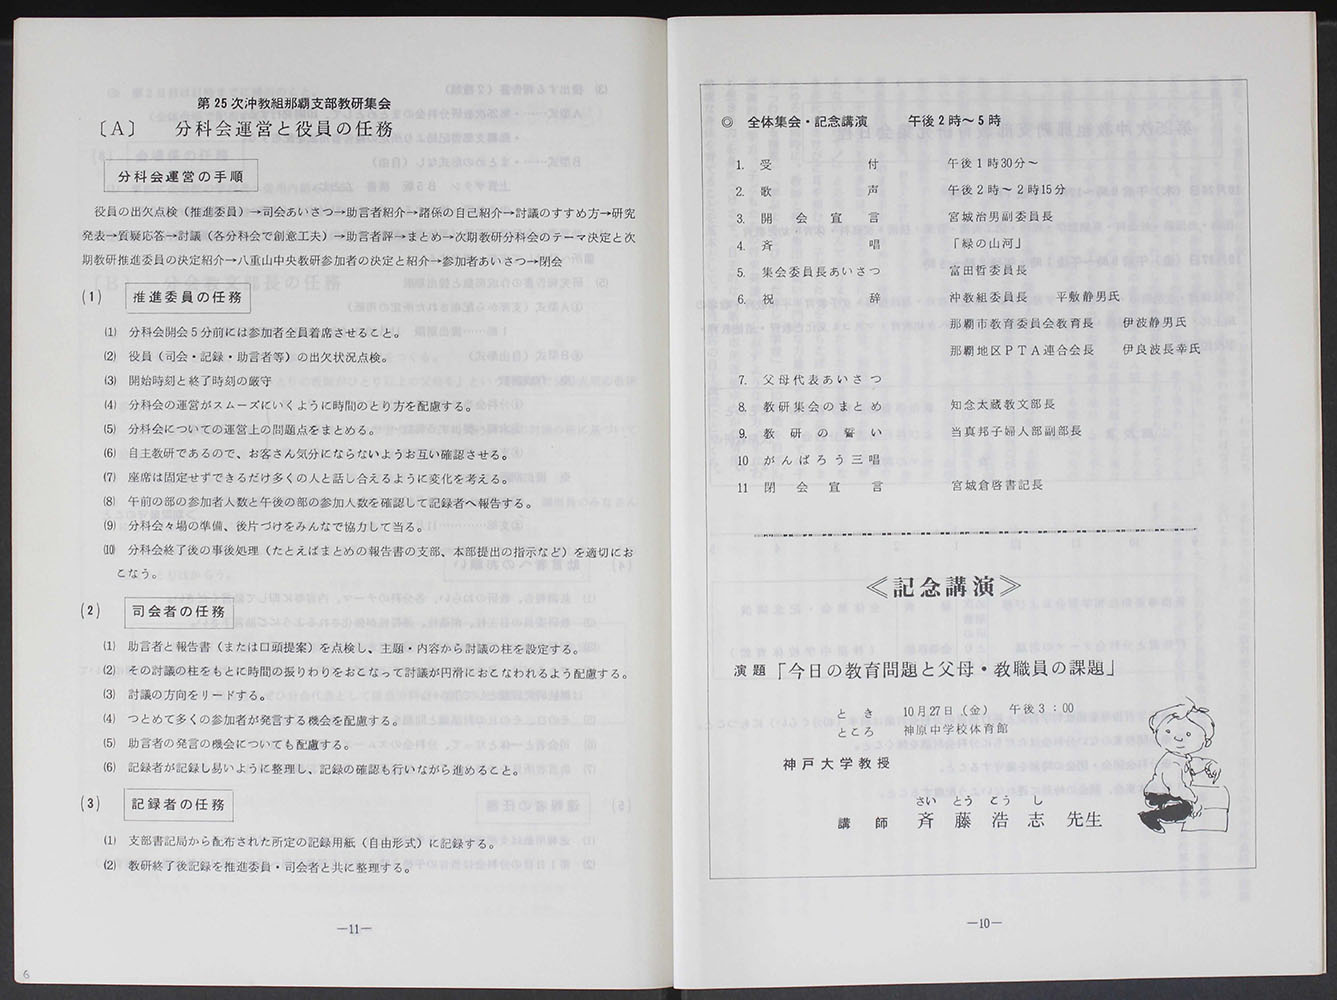 ◎ 全体集会・記念講演 午後2時～5時
1. 受付 午後1時30分～
2. 歌声 午後2時～2時15分
3. 開会宣言 宮城治男副委員長
4. 斉唱 「緑の山河」
5. 集会委員長あいさつ 富田哲委員長
6. 祝辞 沖教組委員長 平敷静男氏
那覇市教育委員会教育長 伊波静男氏
那覇地区PTA連合会長 伊良波長幸氏
7. 父母代表あいさつ
8. 教研集会のまとめ 知念太蔵教文部長
9. 教研の誓い 当真邦子婦人部副部長
10 がんばろう三唱
11 閉会宣言 宮城倉啓書記長
≪記念講演≫
演題「今日の教育問題と父母・教職員の課題」
とき 10月27日(金) 午後3:00
ところ 神原中学校体育館
神戸大学教授
さい とう こう し
講師 斉藤浩志 先生
—10—
第25次沖教組那覇支部教研集会
〔A〕 分科会運営と役員の任務
分科会運営の手順
役員の出欠点検(推進委員)→司会あいさつ→助言者紹介→諸係の自己紹介→討議のすすめ方→研究
発表→質疑応答→討議(各分科会で創意工夫)→助言者評→まとめ→次期教研分科会のテーマ決定と次
期教研推進委員の決定紹介→八重山中央教研参加者の決定と紹介→参加者あいさつ→閉会
(1) 推進委員の任務
(1) 分科会開会5分前には参加者全員着席させること。
(2) 役員(司会・記録・助言者等)の出欠状況点検。
(3) 開始時刻と終了時刻の厳守
(4) 分科会の運営がスムーズにいくように時間のとり方を配慮する。
(5) 分科会についての運営上の問題点をまとめる。
(6) 自主教研であるので、お客さん気分にならないようお互い確認させる。
(7) 座席は固定せずできるだけ多くの人と話し合えるように変化を考える。
(8) 午前の部の参加者人数と午後の部の参加人数を確認して記録者へ報告する。
(9) 分科会々場の準備、後片づけをみんなで協力して当る。
(10) 分科会終了後の事後処理(たとえばまとめの報告書の支部、本部提出の指示など)を適切にお
こなう。
(2) 司会者の任務
(1) 助言者と報告書(または口頭提案)を点検し、主題・内容から討議の柱を設定する。
(2) その討議の柱をもとに時間の振りわりをおこなって討議が円滑におこなわれるよう配慮する。
(3) 討議の方向をリードする。
(4) つとめて多くの参加者が発言する機会を配慮する。
(5) 助言者の発言の機会についても配慮する。
(6) 記録者が記録し易いように整理し、記録の確認も行いながら進めること。
(3) 記録者の任務
(1) 支部書記局から配布された所定の記録用紙(自由形式)に記録する。
(2) 教研終了後記録を推進委員・司会者と共に整理する。
—11—
6